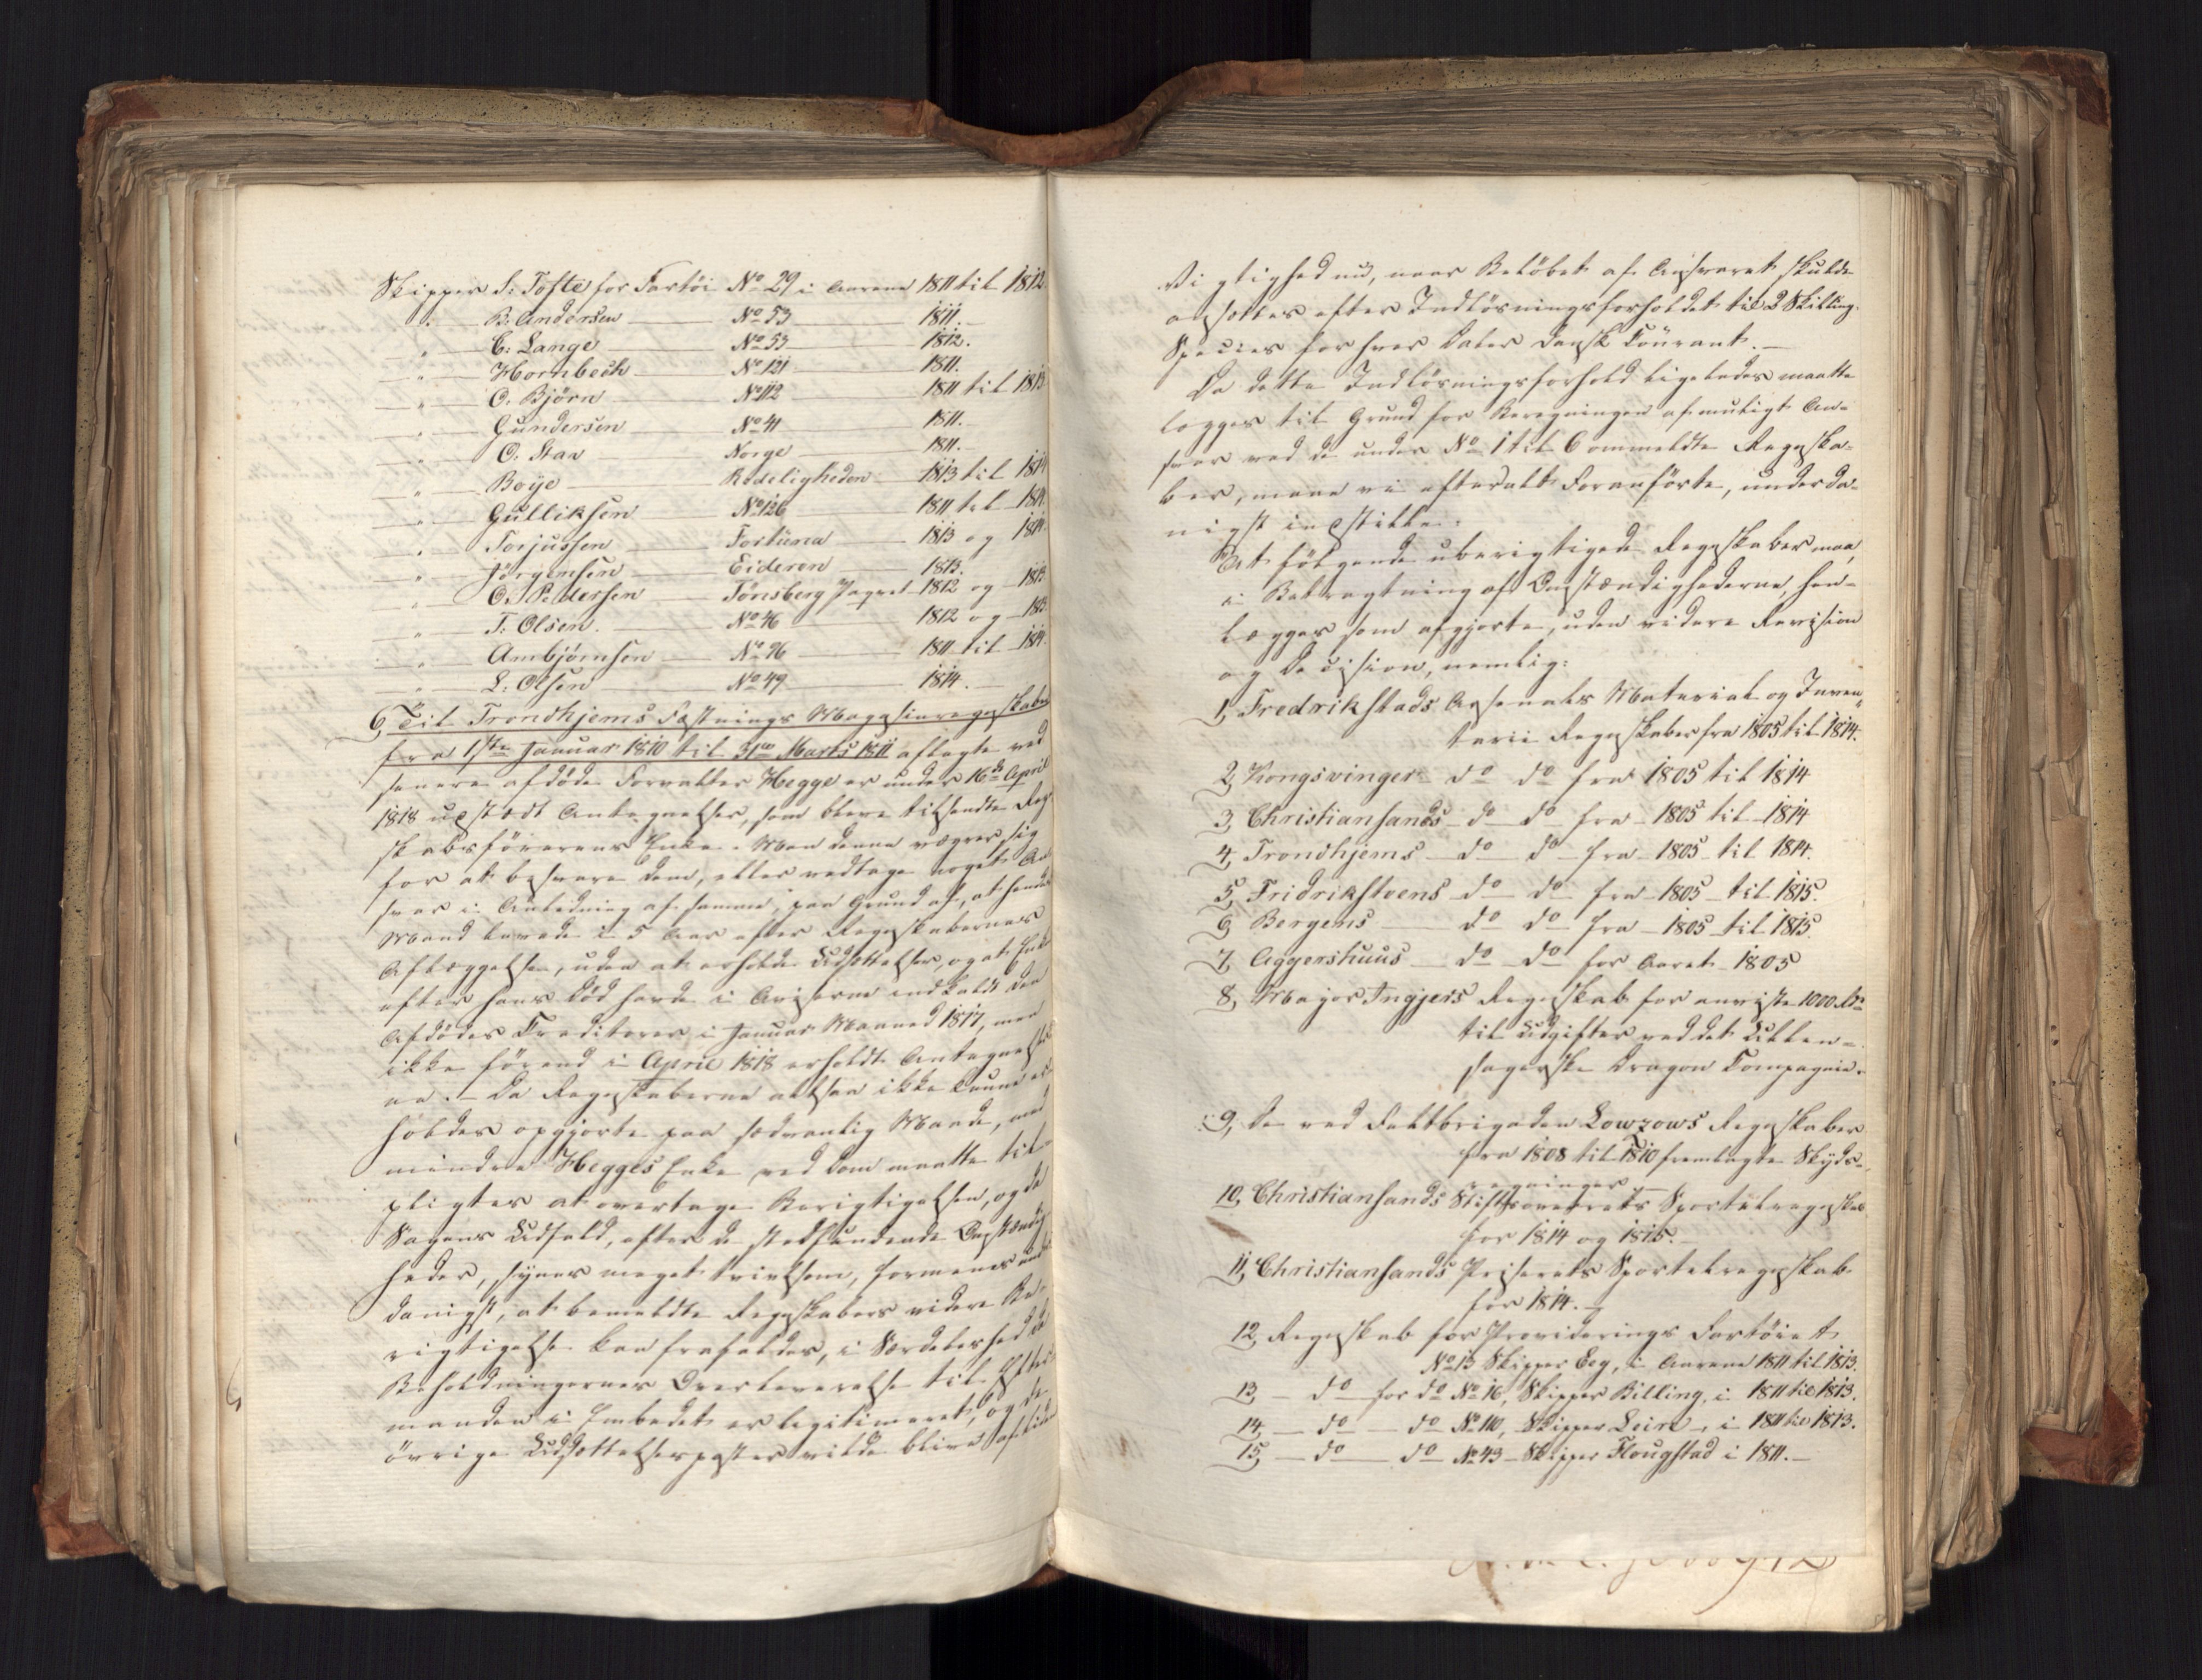 Skipper S: Tofte for Fartöi No 29 i Aarene 1811 til 1812
" — B: Andersen — No 53 — 1811.
" — C: Lange — No 53 — 1812.
" — Hornbech — No 121 — 1811.
" — O. Björn — No 112 — 1811 til 1813
" — Gundersen — No 41 — 1811.
" — O. Stav — Norge — 1811.
" — Boye — Redeligheden — 1813 til 1814
" — Gulliksen — No 126 — 1811 til 1814.
" — Torjussen — Fortuna — 1813 og 1814.
" — Jörgensen — Eideren — 1813.
" — O. Pedersen — Tönsberg Paquet 1812 og 1813
" — T: Olsen. — No 46 — 1812 og 1813
" — Arnbjörnsen — No 96 — 1811 til 1814.
" — L: Olsen — No 49 — 1814.
6, Til Trondhjems Fæstnings Magasinregnskaber
fra 1ste Januar 1810 til 31te Marts 1811 aflagte ved
senere afdöde Forvalter Hegge er under 16de April
1818 udstædt Antegnelser, som bleve tilsendte Regn
skabsförerens Enke. Men denne vægrer sig
for at besvare dem, eller vedtage noget An
svar i Anledning af samme, paa Grund af, at hendes
Mand levede i 5 Aar efter Regnskabernes
Aflæggelse, uden at erholde Udsættelser, og at Enken
efter hans Död havde i Aviserne indkaldt den
Afdödes Creditorer i Januar Maaned 1817, men
ikke förend i April 1818 erholdt Antegnelser
ne. — Da Regnskaberne altsaa ikke kunne er
holdes opgjorte paa sædvanlig Maade, med
mindre Hegges Enke ved Dom maatte til
pligtes at overtage Berigtigelsen, og da
Sagens Udfald, efter de stedfundende Omstændig
heder, synes meget tvivlsom, formenes under
danigst, at bemeldte Regnskabers videre Be
rigtigelse kan frafaldes, i Særdeleshed da
Beholdningernes Overleverelse til Efter
manden i Embedet er legitimeret, og de
övrige Udsættelsesposter vilde blive af liden
Vigtighed, naar Belöbet af Ansvaret skulde
ansættes efter Indlösningsforholdet til 2 Skilling
Species for hver Daler Dansk Courant. —
Da dette Indlösningsforhold ligeledes maatte
lægges til Grund for Beregningen af muligt An=
svar ved de under No 1 til 6 ommeldte Regnska=
ber, maae vi efter alt Foranförte, underda=
nigst indstille:
At fölgende uberigtigede Regnskaber maa,
i Betragtning af Omstændighederne, hen=
lægges som afgjorte, uden videre Revision
og Decision, nemlig:
1, Fredrikstads Arsenals Material og Inven=
tarii Regnskaber fra 1805 til 1814.
2, Kongsvinger do do fra 1805 til 1814
3, Christiansands do do fra 1805 til 1814
4, Trondhjems do do fra 1805 til 1814.
5, Fridriksteens do do fra 1805 til 1815.
6, Bergens do do fra 1805 til 1815.
7, Aggershuus do do for Aaret 1805
8, Major Ingjers Regnskab for anviste 1000 Rd
til Udgifter ved det Ullen=
sagerske Dragon Compagnie.
9, De ved Feltbrigaden Lowzows Regnskaber
fra 1808 til 1810 fremlagte Skyds=
regninger —
10, Christiansands Stiftsoverrets Sportelregnskab
for 1814 og 1815. —
11, Christiansands Priserets Sportelregnskab
for 1814. —
12, Regnskab for Provideringsfartöiet
No 13 Skipper Eeg, i Aarene 1811 til 1813.
13, — do for do No 16, Skipper Billing, i 1811 til 1813.
14, — do — do No 110, Skipper Leire, i 1811 til 1813.
15, — do — do No 43 — Skipper Flougstad i 1811. —